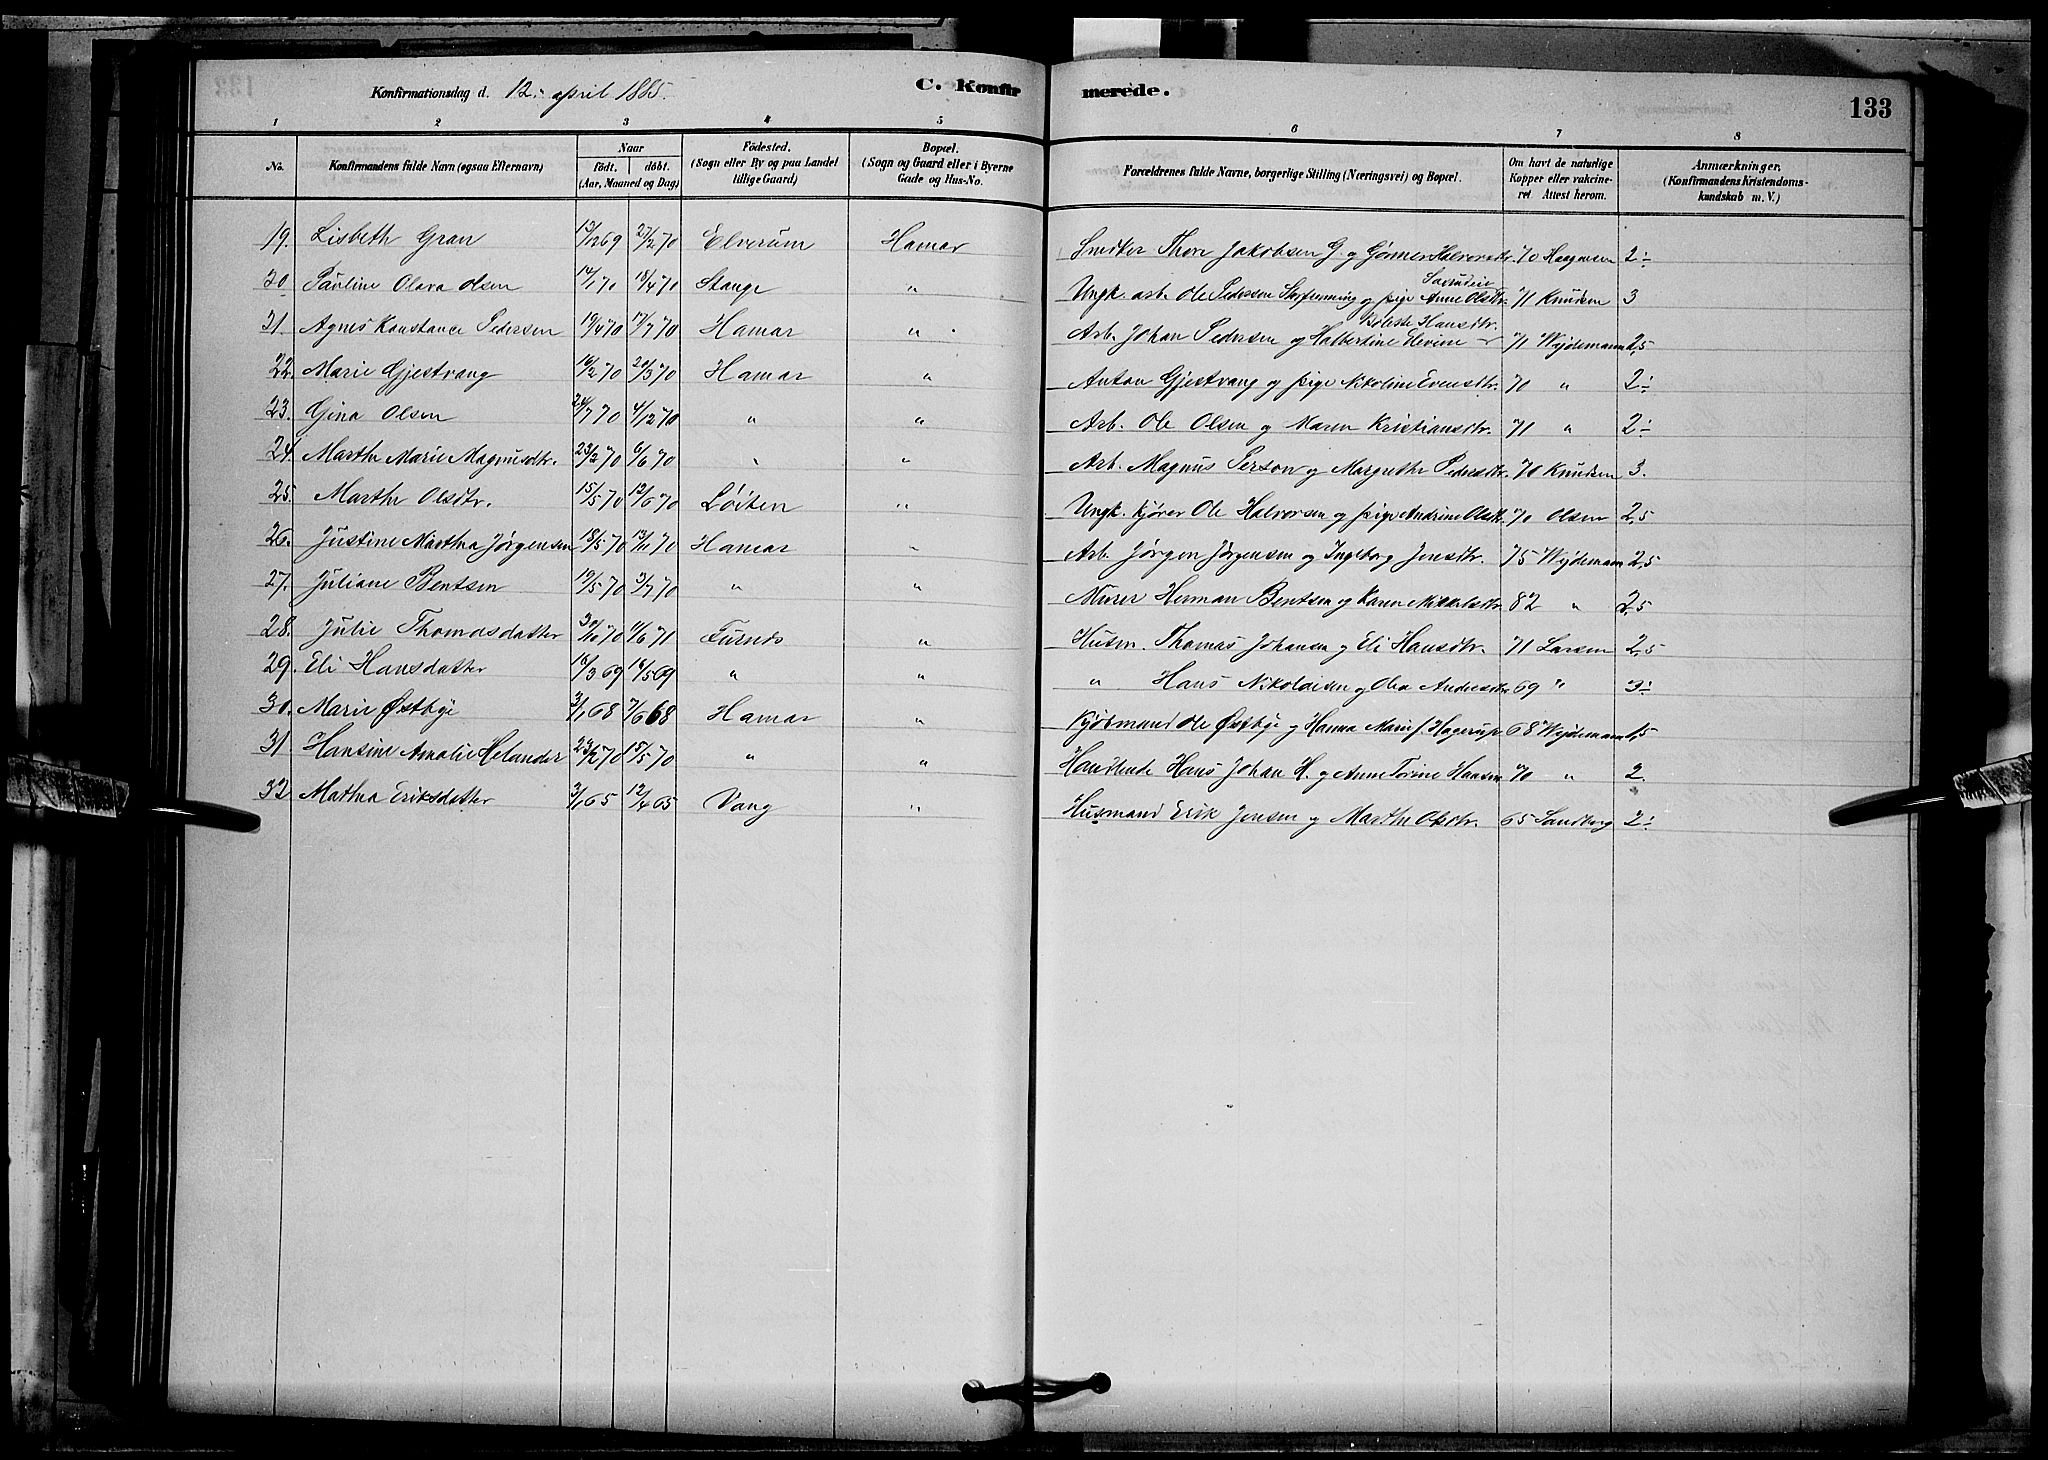 Konfirmationsdag d. 12. april 1885.
C. Konfirmerede.
133
1 2 3 4 5 6 7 8
No.
Konfirmandens fulde Navn (ogsaa Efternavn)
Naar
födt. döbt.
(Aar, Maaned og Dag)
Födested.
(Sogn eller By og paa Landet
tillige Gaard)
Bopæl.
(Sogn og Gaard eller i Byerne
Gade og Hus-No.
Forældrenes fulde Navne, borgerlige Stilling (Næringsvei) og Bopæl.
Om havt de naturlige
Kopper eller vakcine-
ret Attest herom.
Anmærkninger,
(Konfirmandens Kristendoms-
kundskab m. V.)
19. Lisbeth Gran 13/12 69 27/2 70 Elverum Hamar Snedker Thore Jakobsen G. og Gønner Halvorsdtr. 70 2÷
20 Pauline Olava Olsen 14/1 70 18/4 70 Stange " Ungk. arb. Ole Pedersen og pige Anne Olsdtr. 71 Knudsen 3
21. Agnes Konstance Pedersen 19/4 70 17/7 70 Hamar " Arb. Johan Pedersen og Halbertine Hansdtr. 71 Wydemann 2,5
22. Marie Gjestvang 16/2 70 20/3 70 Hamar " Anton Gjestvang og pige Nikoline Evensdtr. 70 " 2÷
23. Gina Olsen 24/7 70 4/12 70 " " Arb. Ole Olsen og Maren Kristiansdtr. 71 " 2÷
24. Marthe Marie Magnusdtr. 23/2 70 6/6 70 " " Arb. Magnus Person og Margrethe Pedersdtr. 70 Knudsen 3.
25. Marthe Olsdtr. 15/5 70 12/6 70 Løiten " Ungk. kjører Ole Halvorsen og pige Andrine Olsdtr. 70 Olsen 2,5
26. Justine Martha Jørgensen 18/5 70 13/11 70 Hamar " Arb. Jørgen Jørgensen og Ingeborg Jensdtr. 75 Wydemann 2,5
27. Juliane Bentsen 19/5 70 3/7 70 " " Murer Herman Bentsen og Karen Mikkelsdtr. 82 " 2,5
28. Julie Thomasdatter 30/10 70 11/6 71 Furnes " Husm. Thomas Johansen og Eli Hansdtr. 71 Larsen 2,5
29. Eli Hansdatter 18/3 69 16/5 69 " " " Hans Nikolaisen og Olea Andersdtr. 69 " 3÷
30. Marie Østbye 3/1 68 7/6 68 Hamar " Kjøbmand Ole Østbye og Hanna Marie f. Hagerup 68 Wydemann 1,5
31 Hansine Amalie Helander 23/2 70 15/5 70 " " Handlende Hans Johan H. og Anne Torine Hansen 70 " 2.
32. Mathea Eriksdatter 3/1 65 12/4 65 Vang " Husmand Erik Jensen og Marthe Olsdtr. 65 Sandberg 2÷